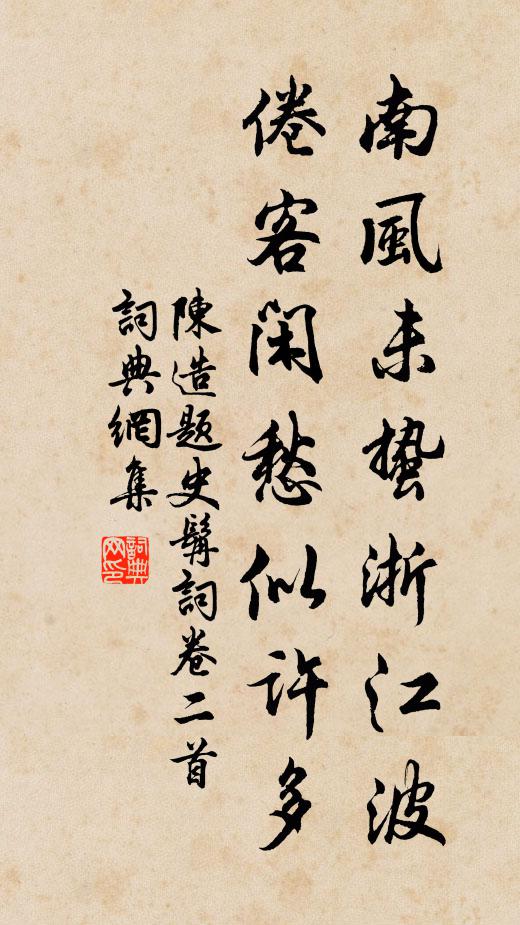 南風未蟄浙江波
倦客閑愁似許多
陳造題史髯詞卷二首
詞典網集
詞典網印